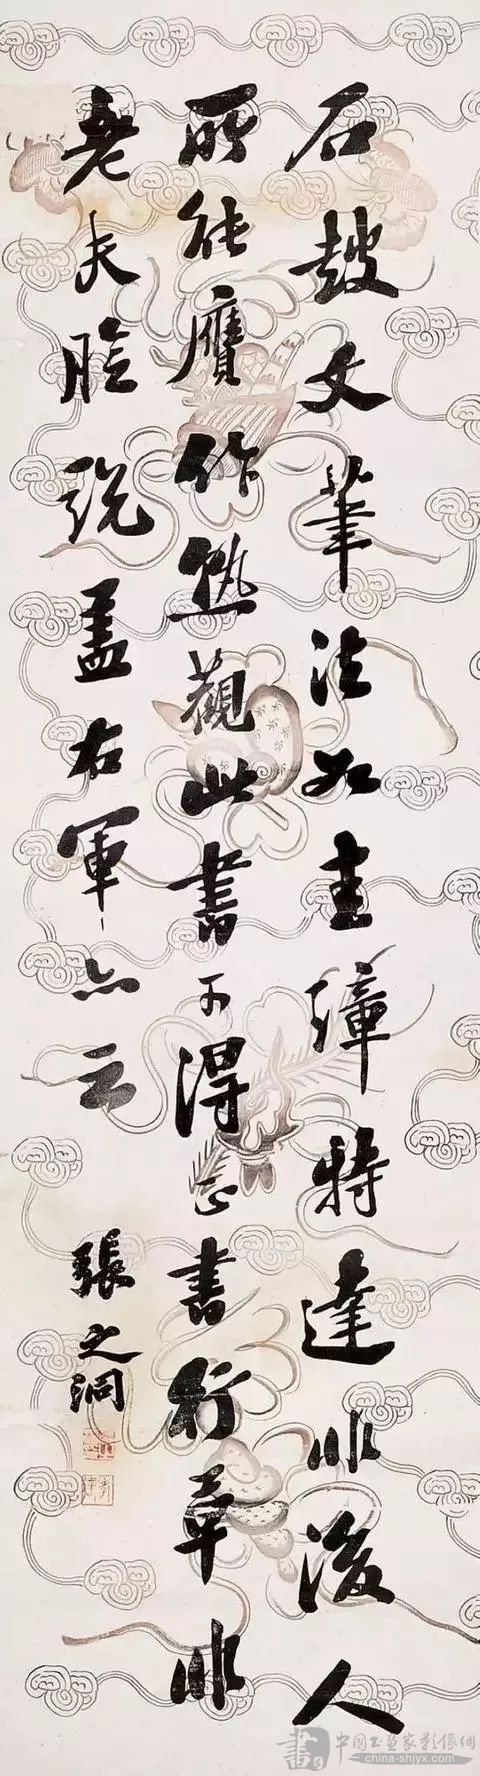 石鼓文筆法如圭璋特達非後人
所能贋作熟觀此書可得正書行草非
老夫臆説蓋右軍亦云
張之洞
中國書畫家影像網
china-shjyx.com